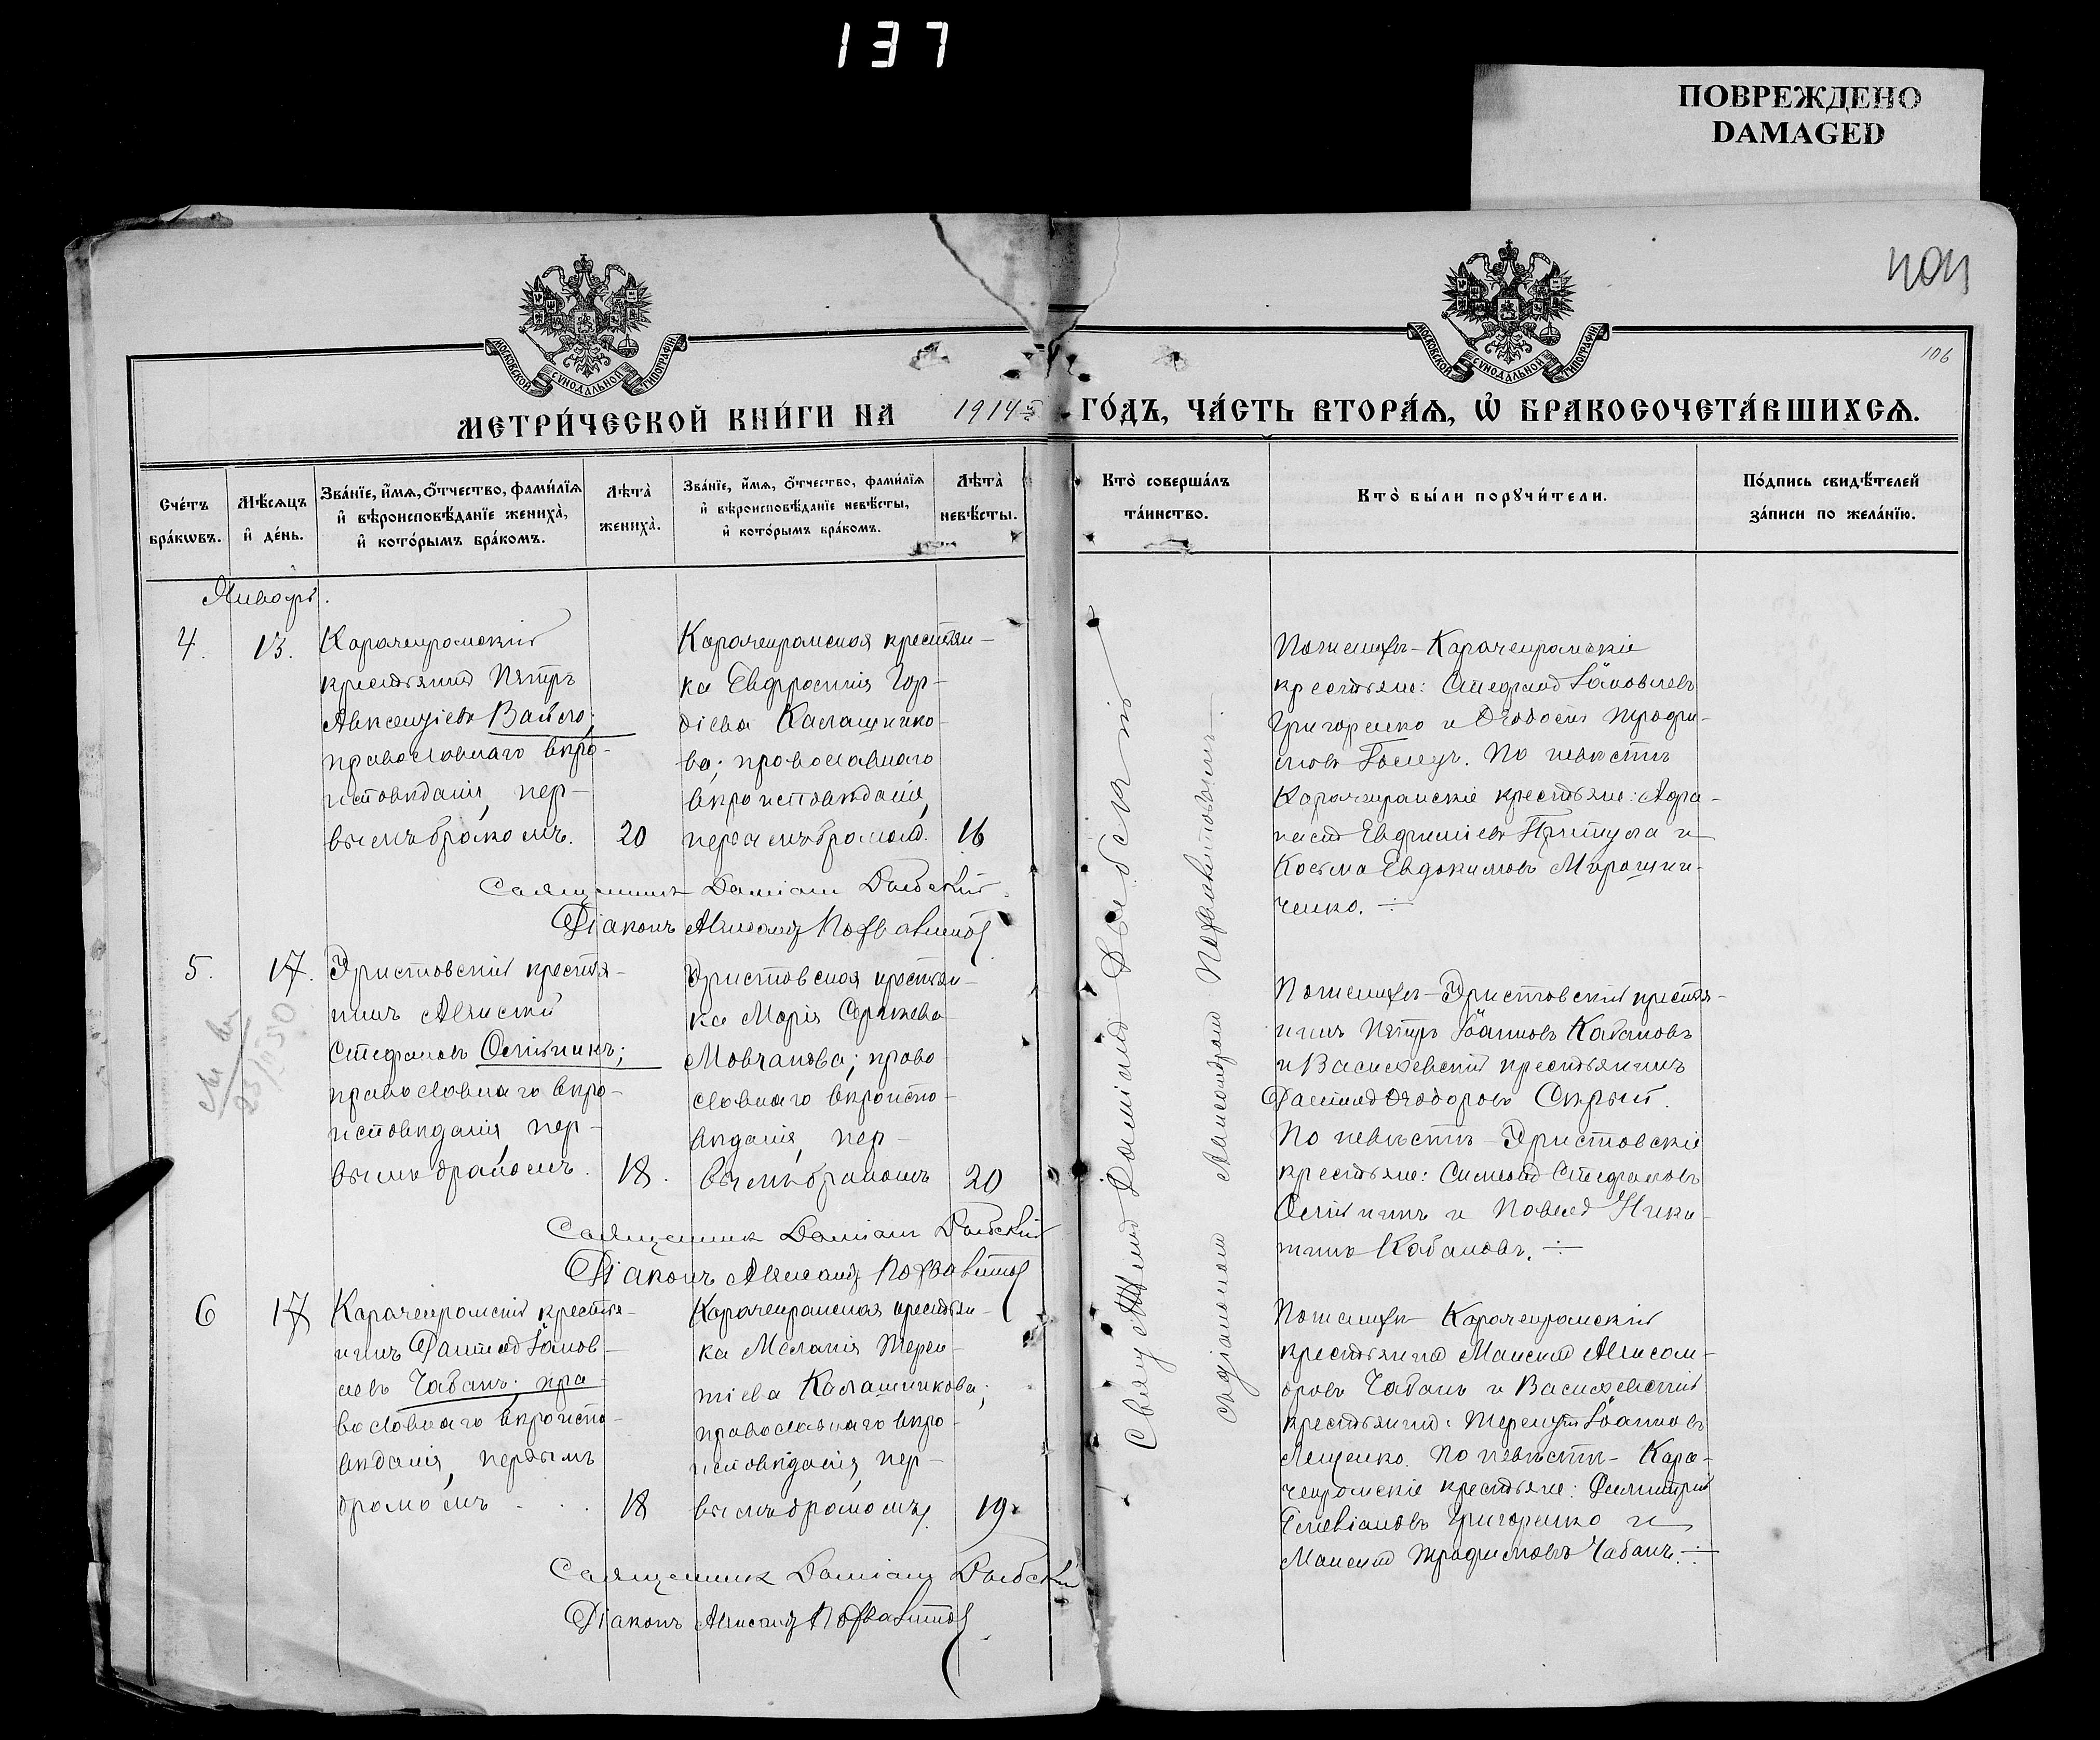 137
ПОВРЕЖДЕНО
DAMAGED
МОСКОВСКОЙ СѴНОДАЛЬНОЙ ТИПОГРАФІИ
МОСКОВСКОЙ СѴНОДАЛЬНОЙ ТИПОГРАФІИ
106
МЕТРИ́ЧЕСКОЙ КНИ́ГИ НА 1914 5 ГО́ДЪ, ЧА́СТЬ ВТОРА́Ѧ, Ѽ БРАКОСОЧЕТА́ВШИХСѦ.
Сче́тъ бра́кѡвъ.
Мѣ́сѧцъ и҆ де́нь.
Зва́нїе, и҆́мѧ, ѻ҆́тчество, фами́лїѧ
и҆ вѣроисповѣ́данїе жениха̀,
и҆ кото́рымъ бра́комъ.
Лѣта̀ жениха̀.
Зва́нїе, и҆́мѧ, ѻ҆́тчество, фами́лїѧ
и҆ вѣроисповѣ́данїе невѣ́сты,
и҆ кото́рымъ бра́комъ.
Лѣта̀ невѣ́сты.
Кто̀ соверша́лъ
та́инство.
Кто̀ бы́ли порꙋчи́тели.
По́дпись свидѣ́телей
за́писи по жела́нїю.
Январь.
4. 13.
Карачекрамскій
крестьянинъ Петръ
Авксентіевъ Вайло;
православнаго вѣро-
исповѣданія, пер-
вымъ бракомъ. 20
Карачекрамская крестьян-
ка Евфросинія Гор-
діева Калашнико-
ва; православнаго
вѣроисповѣданія,
первымъ бракомъ. 16
Поженихѣ - Карачекрамскіе
крестьяне: Стефанъ Іаковлевъ
Григоренко и Ѳеодосій Трофи-
мовъ По невѣстѣ
Карачекрамскіе крестьяне:
Евфиміевъ Притула и
Косьма Евдокимовъ Мирошни-
ченко.
Священникъ Даміанъ
Діаконъ Александръ Похвалитовъ
5. 17.
Эристовскій крестья-
нинъ Алексій
Стефановъ
православнаго вѣро-
исповѣданія, пер-
вымъ бракомъ. 18.
Эристовская крестьян-
ка Марія Сергіева
Мовчанова; право
славнаго вѣроиспо-
вѣданія, пер-
вымъ бракомъ 20
Поженихѣ - Эристовскій крестья-
нинъ Петръ Іоанновъ Кабановъ
и Василевскій крестьянинъ
Даніилъ Ѳеодоровъ
По невѣстѣ - Эристовскіе
крестьяне: Симеонъ Стефановъ
и Павелъ Ники-
тинъ Кабановъ.
Священникъ Даміанъ
Діаконъ Александръ Похвалитовъ
6 17
Карачекрамскій крестья-
нинъ Даніилъ Іаков-
левъ Чабанъ; пра-
вославнаго вѣроиспо-
вѣданія, первымъ
бракомъ 18
Карачекрамская крестьян-
ка Меланія Терен-
тіева Калашникова;
православнаго вѣро-
исповѣданія, пер-
вымъ бракомъ. 19.
Поженихѣ - Карачекрамскій
крестьянинъ Алексан-
дровъ Чабанъ и Василевскій
крестьянинъ: Терентій Іоанновъ
Лещенко. По невѣстѣ - Кара-
чекрамскіе крестьяне: Димитрій
Григоренко и
Трофимовъ Чабанъ.
Священникъ Даміанъ
Діаконъ Александръ Похвалитовъ
Священникъ Даміанъ
съ діакономъ Александромъ Похвалитовымъ